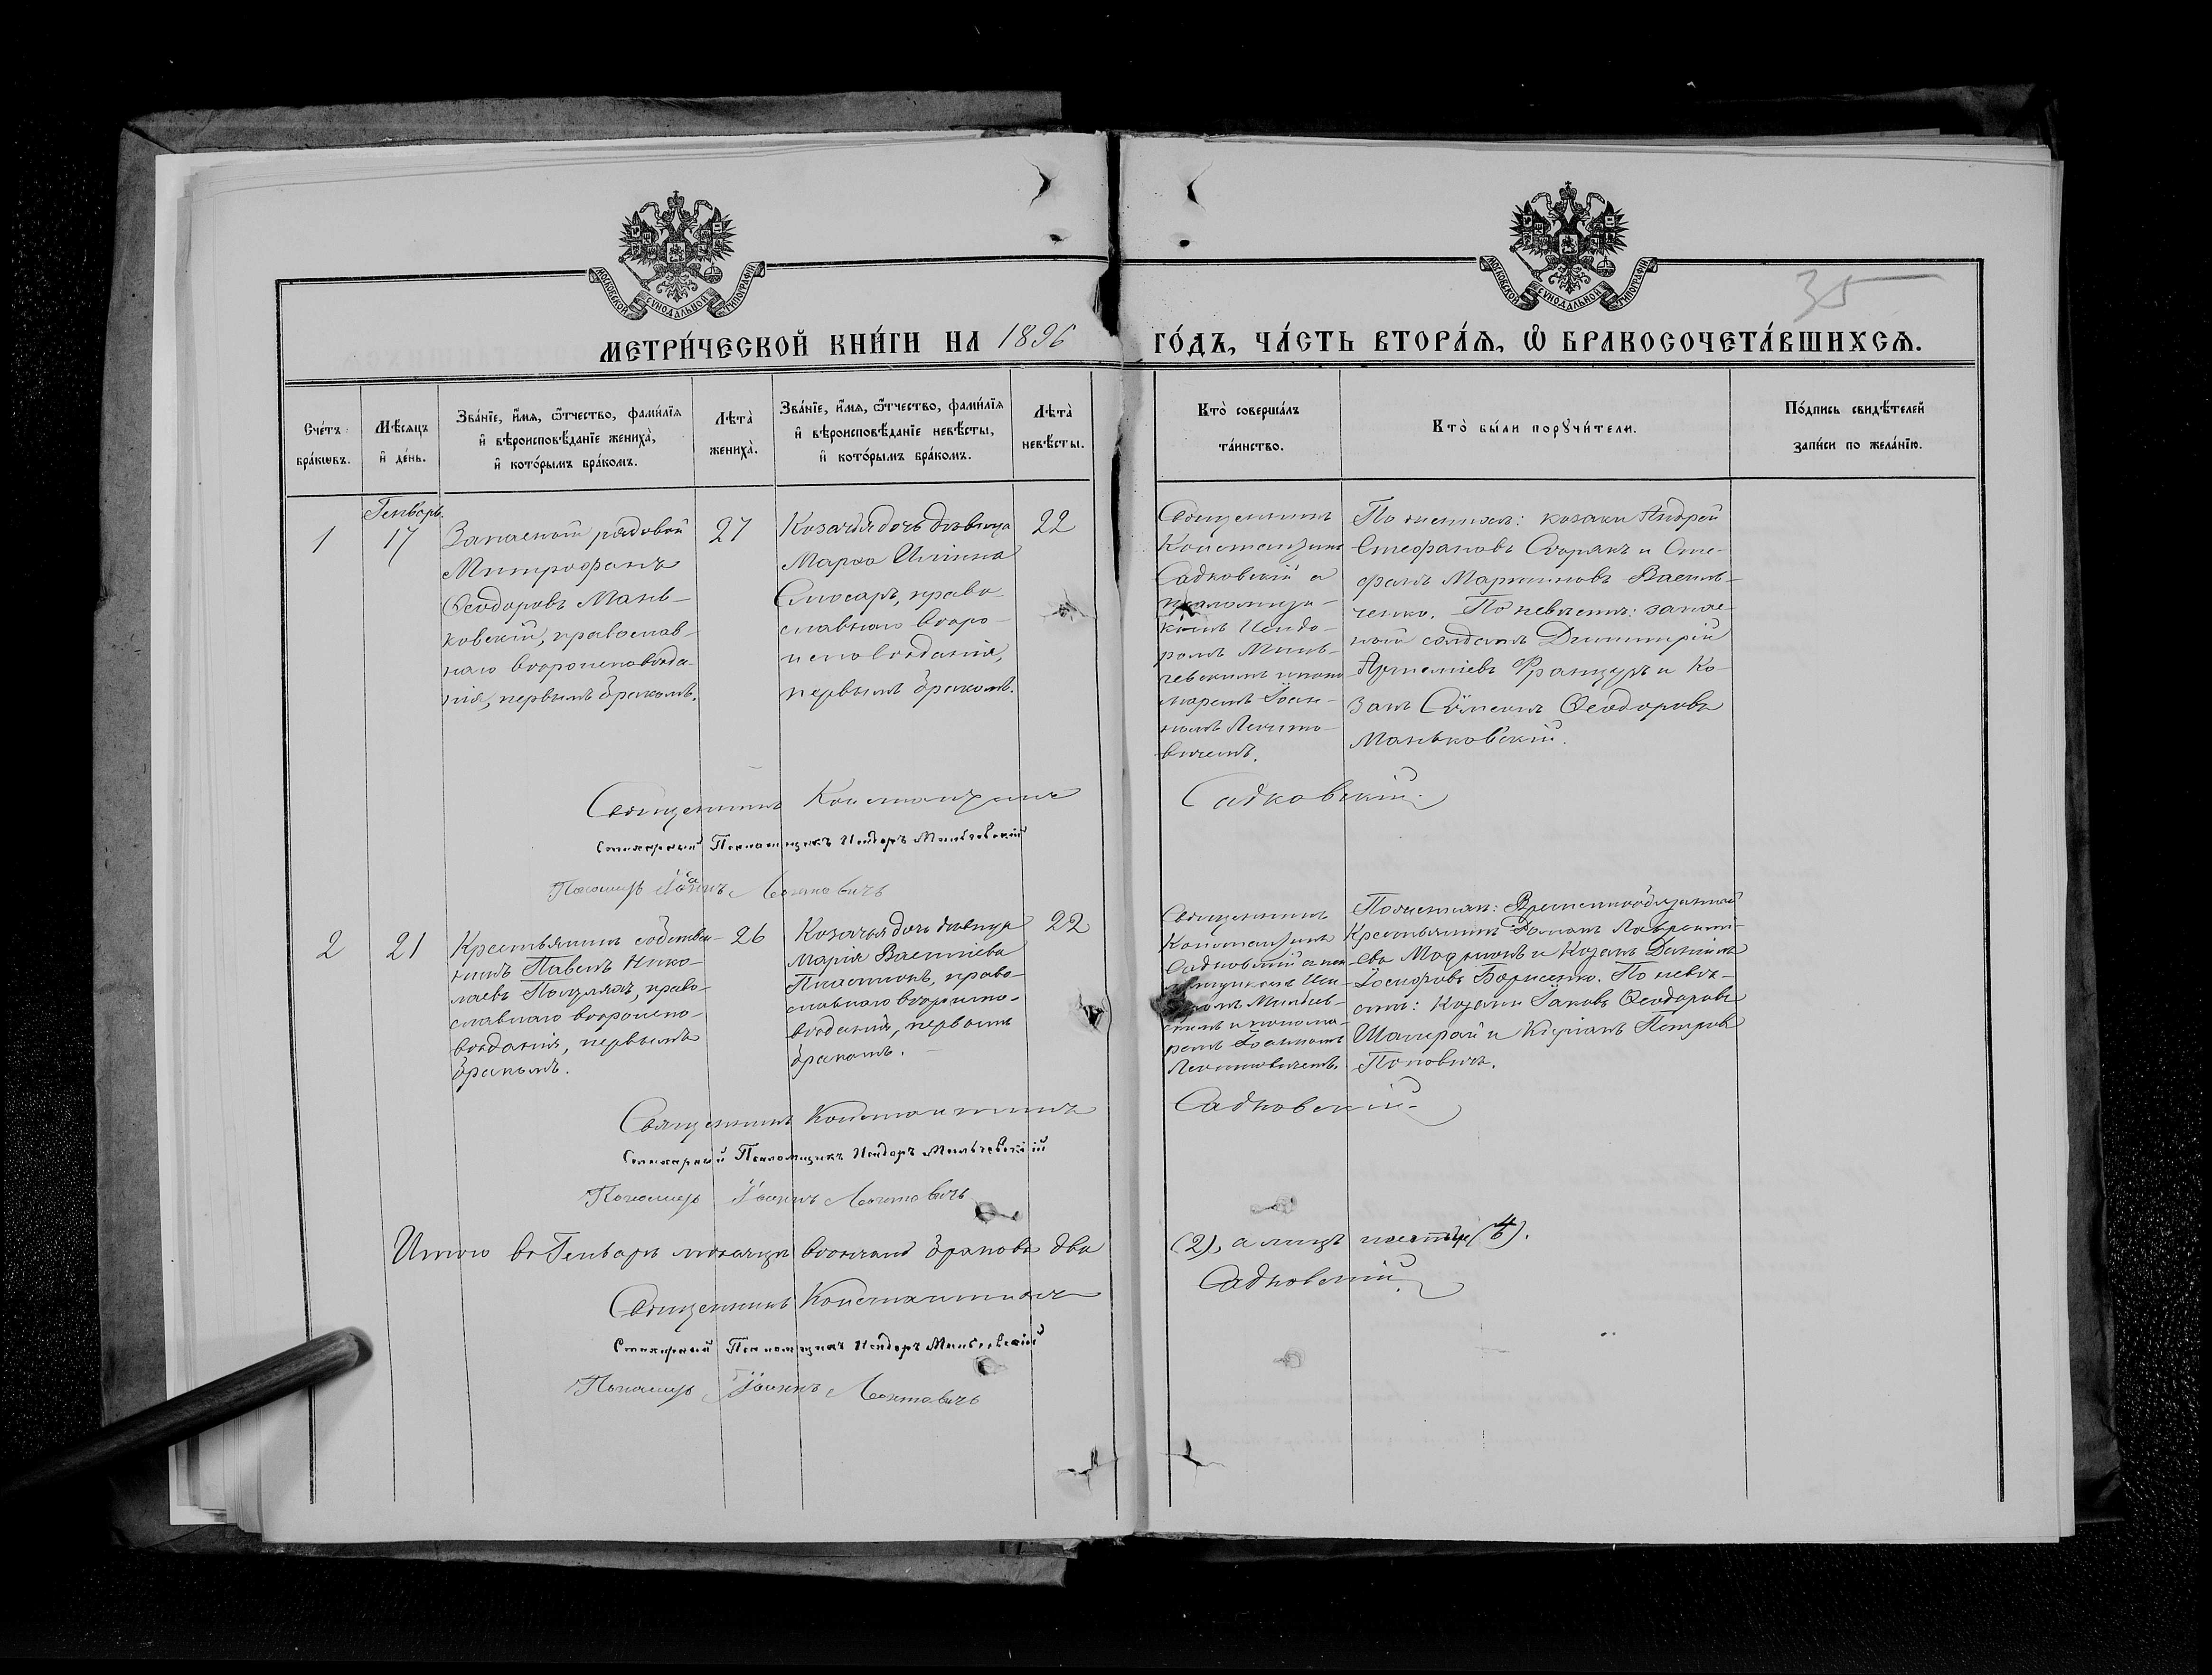 МОСКОВСКОЙ СѴНОДАЛЬНОЙ ТИПОГРАФІИ
МОСКОВСКОЙ СѴНОДАЛЬНОЙ ТИПОГРАФІИ
35
МЕТРИ́ЧЕСКОЙ КНИ́ГИ НА 1896 ГО́ДЪ, ЧА́СТЬ ВТОРА́Ѧ, Ѡ҆ БРАКОСОЧЕТА́ВШИХСѦ.
Сче́тъ
бра́кѡвъ.
Мѣ́сѧцъ
и҆ де́нь.
Зва́нїе, и҆́мѧ, ѻ҆́тчество, фами́лїѧ
и҆ вѣроисповѣ́данїе жениха̀,
и҆ кото́рымъ бра́комъ.
Лѣта̀
жениха̀.
Зва́нїе, и҆́мѧ, ѻ҆́тчество, фами́лїѧ
и҆ вѣроисповѣ́данїе невѣ́сты,
и҆ кото́рымъ бра́комъ.
Лѣта̀
невѣ́сты.
Кто̀ соверша́лъ
та́инство.
Кто̀ бы́ли порꙋчи́тели.
По́дпись свидѣ́телей
за́писи по жела́нїю.
1
Генварь.
17
Запасной рядовой
Митрофанъ
Ѳеодоровъ Мань-
ковскій, православ-
наго вѣроисповѣда-
нія, первымъ бракомъ.
27
Козачья дочь дѣвица
Марѳа Ильина
Слюсарь, право-
славнаго вѣро-
исповѣданія,
первымъ бракомъ.
22
Священникъ
Константинъ
Садковскій съ
псаломщи-
комъ Исидо-
ромъ Миль-
чевскимъ и поно
маремъ Іоан-
номъ Леонто-
вичемъ.
По женихѣ: козаки Андрей
Стефановъ и Сте-
фанъ Мартиновъ Василь-
ченко. По невѣстѣ: запас-
ный солдатъ Димитрій
Артеміевъ Французъ и Ко-
закъ Сѵмеонъ Ѳеодоровъ
Маньковскій.
Священникъ Константинъ Садковскій
Стихарный Псаломщикъ Исидоръ Мильчевскій
Пономарь Іоаннъ Леонтовичъ
2
21
Крестьянинъ собствен-
никъ Павелъ Нико-
лаевъ право-
славнаго вѣроиспо-
вѣданія, первымъ
бракомъ.
26
Козачья дочь дѣвица
Марія Васильева
право-
славнаго вѣроиспо-
вѣданія, первымъ
бракомъ.
22
Священникъ
Константинъ
Садковскій съ пса
ломщикомъ Иси-
доромъ Мильчев-
скимъ и понома-
ремъ Іоанномъ
Леонтовичемъ.
По женихѣ: Временнообязанный
Крестьянинъ Романъ Лавренті-
евъ и Козакъ Даніилъ
Іосифовъ Борисенко. По невѣ-
стѣ: Козаки Іаковъ Ѳеодоровъ
и Кипріанъ Петровъ
Поповичъ.
Священникъ Константинъ Садковскій
Стихарный Псаломщикъ Исидоръ Мильчевскій
Пономарь Іоаннъ Леонтовичъ
Итого въ Генварѣ мѣсяцѣ вѣнчано браковъ два (2), а лицъ четыре (4).
Священникъ Константинъ Садковскій
Стихарный Псаломщикъ Исидоръ Мильчевскій
Пономарь Іоаннъ Леонтовичъ